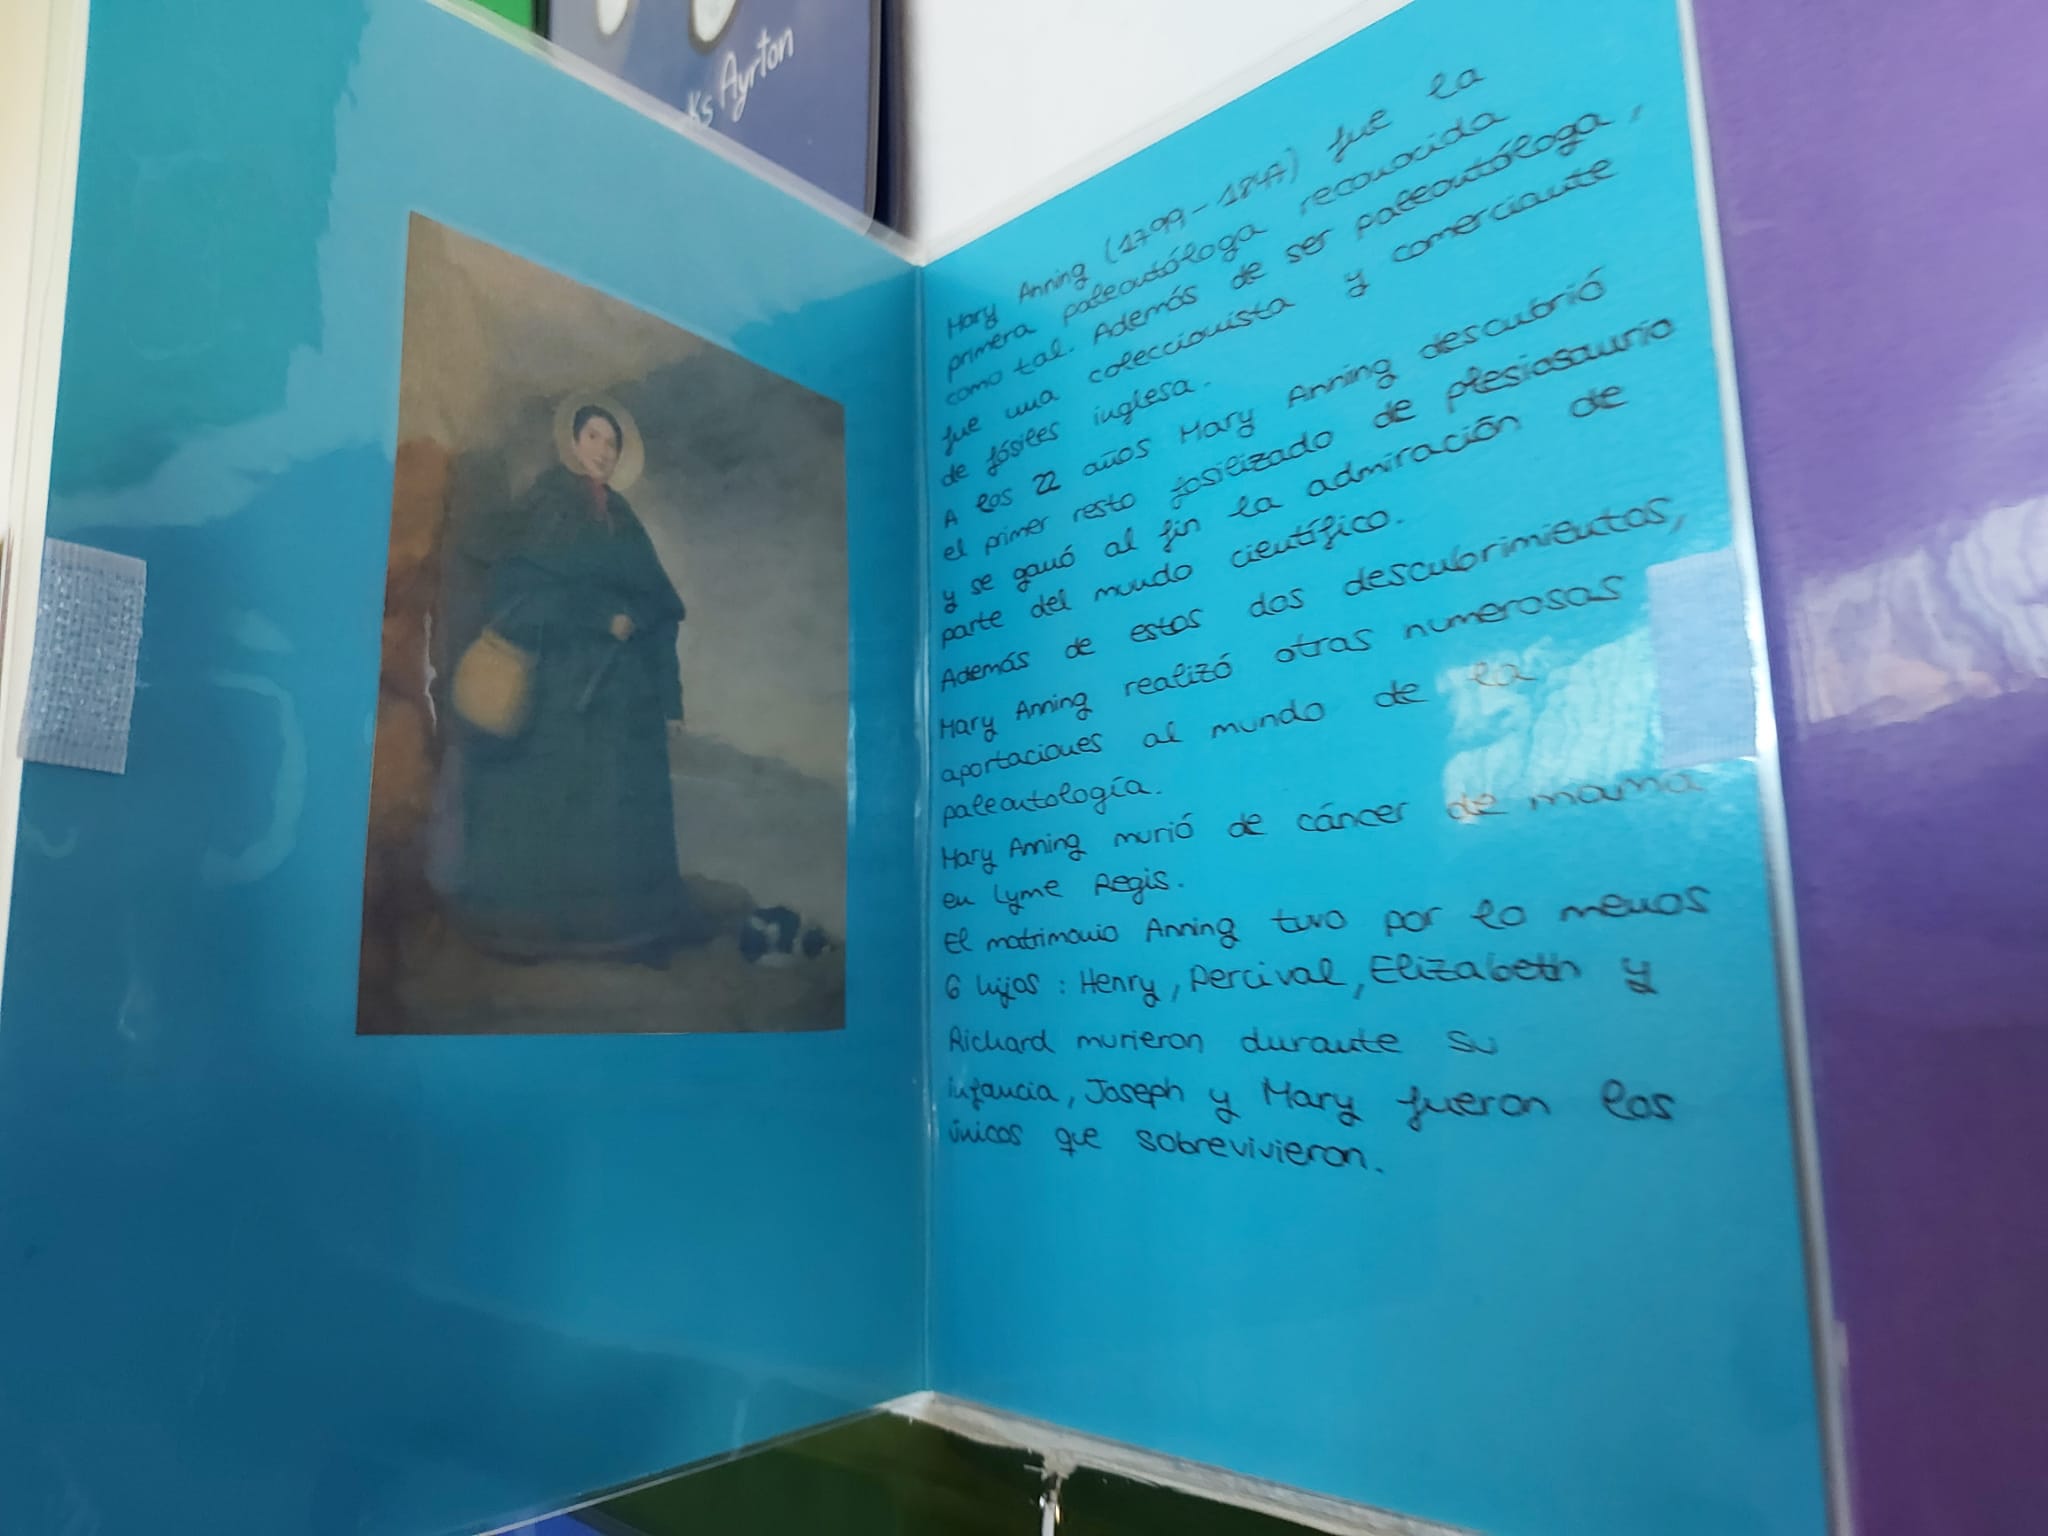 ks Ayrton
Mary Anning (1799-1847) fue la
primera paleontóloga reconocida
como tal. Además de ser paleontóloga,
fue una coleccionista y comerciante
de fósiles inglesa.
A los 22 años Mary Anning descubrió
el primer resto fosilizado de plesiosaurio
y se ganó al fin la admiración de
parte del mundo científico.
Además de estos dos descubrimientos,
Mary Anning realizó otras numerosas
aportaciones al mundo de la
paleontología.
Mary Anning murió de cáncer de mama
en Lyme Regis.
El matrimonio Anning tuvo por lo menos
6 hijos: Henry, Percival, Elizabeth y
Richard murieron durante su
infancia, Joseph y Mary fueron los
únicos que sobrevivieron.